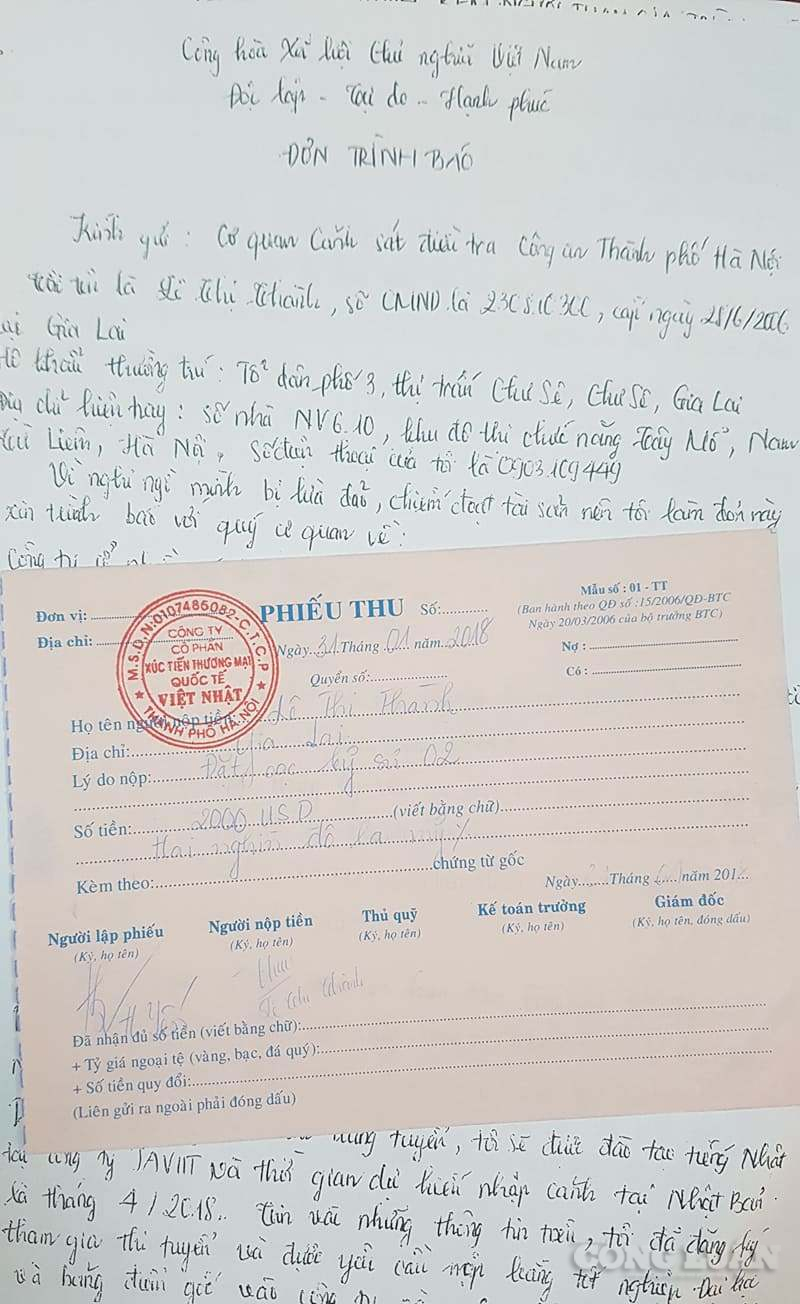 Cộng hòa Xã hội Chủ nghĩa Việt Nam
Độc lập - Tự do - Hạnh phúc
ĐƠN TRÌNH BÁO
Kính gửi : Cơ quan Cảnh sát điều tra Công an Thành phố Hà Nội
Tôi tên là Lê Thị Thanh, số CMND là cấp ngày 28/6/2006
tại Gia Lai
Hộ khẩu thường trú : Tổ dân phố 3, thị trấn Chư Sê, Chư Sê, Gia Lai
Địa chỉ hiện nay : số nhà NV6.10, khu đô thị chức năng Tây Mỗ, Nam
Từ Liêm, Hà Nội, Số điện thoại của tôi là 0903.109449
Vì nghi ngờ mình bị lừa đảo, chiếm đoạt tài sản nên tôi làm đơn này
xin trình báo với quý cơ quan về :
Công ty cổ
Đơn vị:
Địa chỉ:
M.S.D.N:0107485082-C.T.C.P
CÔNG TY
CỔ PHẦN
XÚC TIẾN THƯƠNG MẠI
QUỐC TẾ
VIỆT NHẬT
THÀNH PHỐ HÀ NỘI
PHIẾU THU Số:
Ngày 31 Tháng 01 năm 2018
Quyển số:
Mẫu số : 01 - TT
(Ban hành theo QĐ số :15/2006/QĐ-BTC
Ngày 20/03/2006 của bộ trưởng BTC)
Nợ :
Có :
Họ tên người nộp tiền: Lê Thị Thanh
Địa chỉ: Gia Lai
Lý do nộp: Đặt cọc kỹ sư 02
Số tiền: 2000 USD (viết bằng chữ)
Hai nghìn đô la mỹ
Kèm theo: chứng từ gốc
Ngày Tháng năm 201
Người lập phiếu
(Ký, họ tên)
Người nộp tiền
(Ký, họ tên)
Thủ quỹ
(Ký, họ tên)
Kế toán trưởng
(Ký, họ tên)
Giám đốc
(Ký, họ tên, đóng dấu)
Đã nhận đủ số tiền (viết bằng chữ):
+ Tỷ giá ngoại tệ (vàng, bạc, đá quý):
+ Số tiền quy đổi:
(Liên gửi ra ngoài phải đóng dấu)
tuyển, tôi sẽ được đào tạo tiếng Nhật
tại công ty JAVIIT và thời gian dự kiến nhập cảnh tại Nhật Bản
là tháng 4/2018. Tin vào những thông tin trên, tôi đã đăng ký
tham gia thi tuyển và được yêu cầu nộp bằng tốt nghiệp Đại học
và bảng điểm gốc vào công ty
CÔNG LUẬN